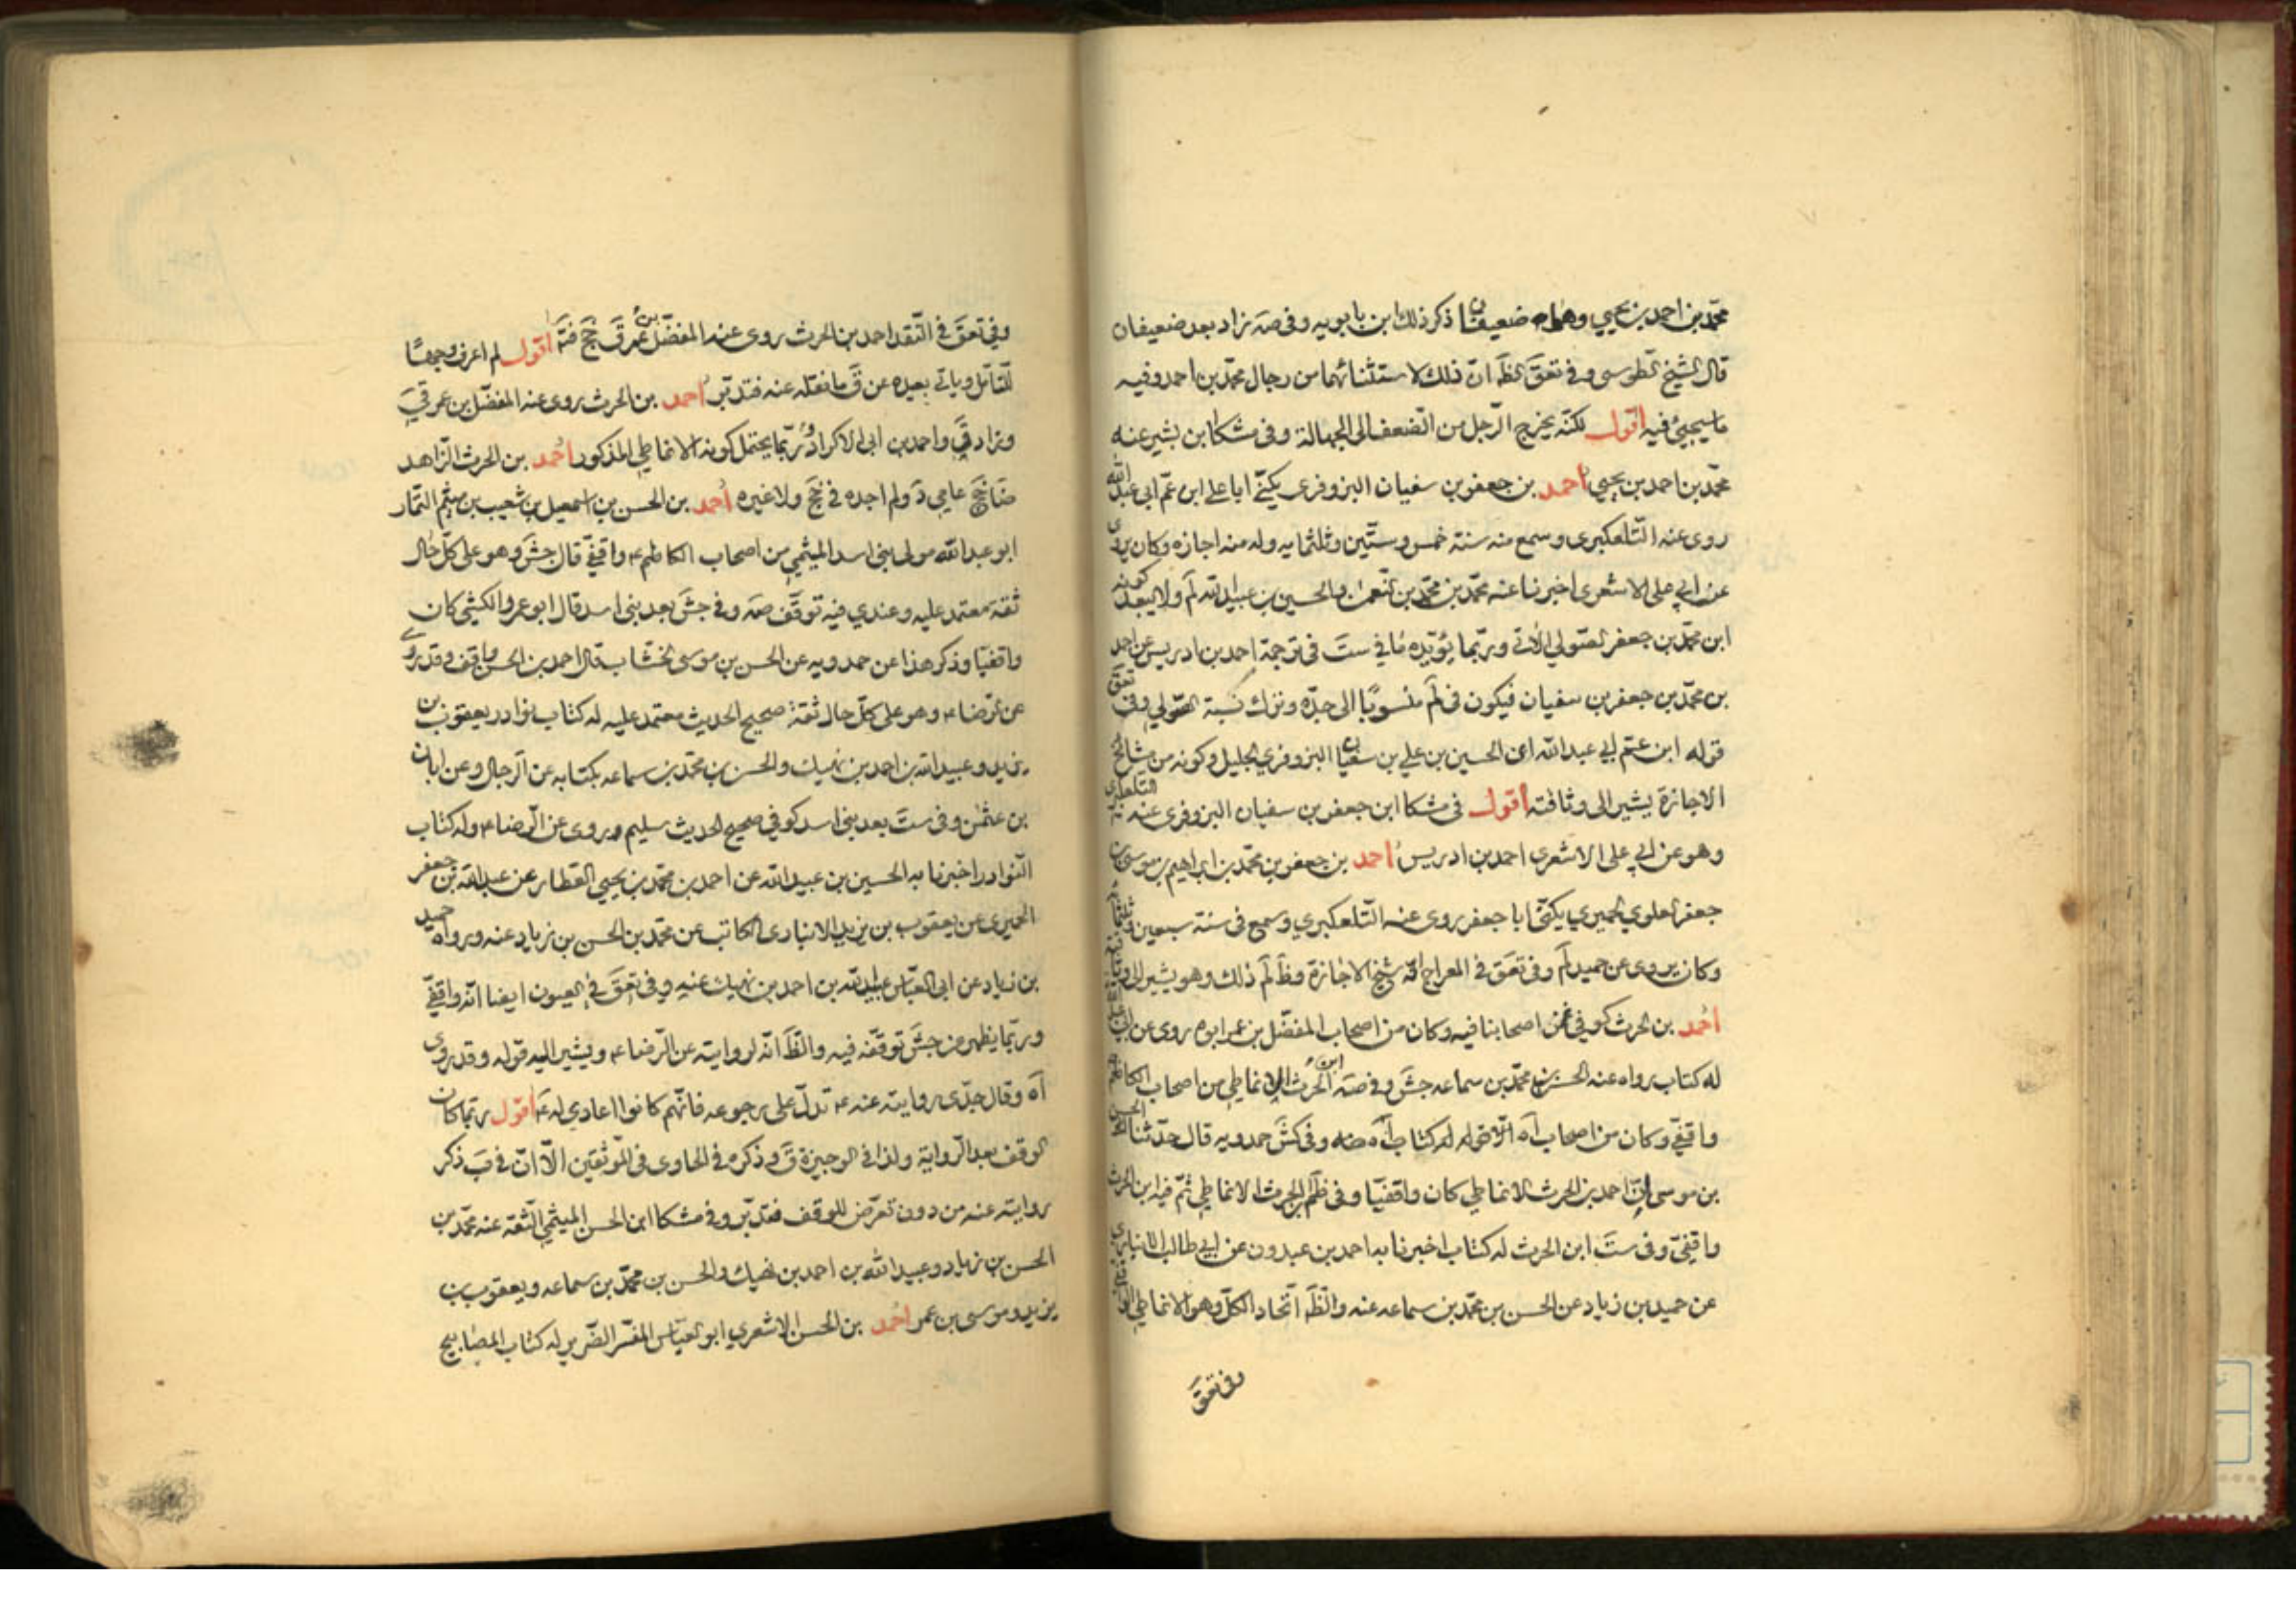 محمّد بن احمد بن يحيى وهما ضعيفان ذكر ذلك ابن بابويه وفي صه زاد بعد ضعيفان
قال الشيخ الطوسي وفي تعق الظ انّ ذلك لاستثنائهما من رجال محمّد بن احمد وفيه
ما سيجيئ فيه اقول لكنّه يخرج الرّجل من الضّعف الى الجهالة وفي مشكا ابن بشير عنه
محمّد بن احمد بن يحيى احمد بن جعفر بن سفيان البزوفري يكنّى ابا علي ابن عمّ ابي عبد الله
روى عنه التّلعكبري وسمع منه سنة خمس وستّين وثلثمايه وله منه اجازه وكان يروي
عن ابي علي الاشعري اخبرنا عنه محمّد بن محمّد بن النّعمن والحسين بن عبيد الله لم ولا يبعد كونه
ابن محمّد بن جعفر الصّولي الاتي وربّما يؤيّده ما في ست في ترجمة احمد بن ادريس عن احمد
بن محمّد بن جعفر بن سفيان فيكون في لم منسوبًا الى جدّه وترك نسبة الصّولي وفي تعق
قوله ابن عمّ ابي عبد الله اى الحسين بن علي بن سفيان البزوفري الجليل وكونه من مشايخ
الاجازة يشير الى وثاقته اقول في مشكا ابن جعفر بن سفيان البزوفري عنه التلعكبري
وهو عن ابي علي الاشعري احمد بن ادريس احمد بن جعفر بن محمّد بن ابراهيم بن موسى بن
جعفر العلوي الحميري يكنّى ابا جعفر روى عنه التّلعكبري وسمع في سنة سبعين وثلثمائه
وكان يروي عن حميد لم وفي تعق في المعراج انّه شيخ الاجازة وظ لم ذلك وهو يشير الى وثاقته
احمد بن الحرث كوفي غمز اصحابنا فيه وكان من اصحاب المفضّل بن عمر ابوه روى عن ابي عبد الله
له كتاب رواه عنه الحسن بن محمّد بن سماعه جش وفي صه ابن الحرث الانماطي من اصحاب الكاظم
واقفيّ وكان من اصحاب اه الّا قوله له كتاب اه وفي كش حمدويه قال حدّثنا الحسن
بن موسى انّ احمد بن الحرث الانماطي كان واقفيّا وفي ظم ابن الحرث الانماطي ثمّ فيه ابن الحرث
واقفيّ وفي ست ابن الحرث له كتاب اخبرنا به احمد بن عبدون عن ابي طالب الانباري
عن حميد بن زياد عن الحسن بن محمّد بن سماعه عنه والظّ اتّحاد الكلّ وهو الانماطي
وفي تعق
وفي تعق في النّقد احمد بن الحرث روى عنه المفضّل بن عمر ق جخ فتم اقول لم اعرف وجهًا
للتّامّل وياتي بعيده عن ق ما نقله عنه فتدبّر احمد بن الحرث روى عنه المفضّل بن عمر قي
وزاد قي واحمد بن ابي الاكراد وربّما يحتمل كونه الانماطي المذكور احمد بن الحرث الزّاهد
ضا جخ عامي د ولم اجده في جخ ولا غيره احمد بن الحسن بن اسمعيل بن شعيب بن ميثم التّمار
ابو عبد الله مولى بني اسد الميثمي من اصحاب الكاظم ع واقفيّ قال جش وهو على كلّ حال
ثقة معتمد عليه وعندي فيه توقّف صه وفي جش بعد بني اسد قال ابو عمرو الكشّي كان
واقفيّا وذكر هذا عن حمدويه عن الحسن بن موسى الخشّاب قال احمد بن الحسن واقف وقد روى
عن الرّضا ع وهو على كلّ حال ثقة صحيح الحديث معتمد عليه له كتاب نوادر يعقوب بن
يزيد وعبيد الله بن احمد بن نهيك والحسن بن محمّد بن سماعه بكتابه عن الرّجال وعن ابان
بن عثمن وفي ست بعد بني اسد كوفي صحيح الحديث سليم وروى عن الرّضا ع وله كتاب
النّوادر اخبرنا به الحسين بن عبيد الله عن احمد بن محمّد بن يحيى العطار عن عبد الله بن جعفر
الحميري عن يعقوب بن يزيد الانباري الكاتب عن محمّد بن الحسن بن زياد عنه ورواه حميد
بن زياد عن ابي العبّاس عبيد الله بن احمد بن نهيك عنه وفي تعق في العيون ايضا انّه واقفيّ
وربّما يظهر من جش توقّفه فيه والظّ انّه لروايته عن الرّضا ع ويشير اليه قوله وقد روى
اه وقال جدّي روايته عنه ع تدلّ على رجوعه فانّهم كانوا اعادي له ع اقول ربّما كان
الوقف بعد الرّواية ولذا في الوجيزة ق وذكره في الحاوي في الموثّقين الّا انّ في ب ذكر
روايته عنه من دون تعرّض للوقف فتدبّر وفي مشكا ابن الحسن الميثمي الثّقة عنه محمّد بن
الحسن بن زياد وعبيد الله بن احمد بن نهيك والحسن بن محمّد بن سماعه ويعقوب بن
يزيد وموسى بن عمر احمد بن الحسن الاشعري ابو العبّاس المفسّر الضّرير له كتاب المصابيح